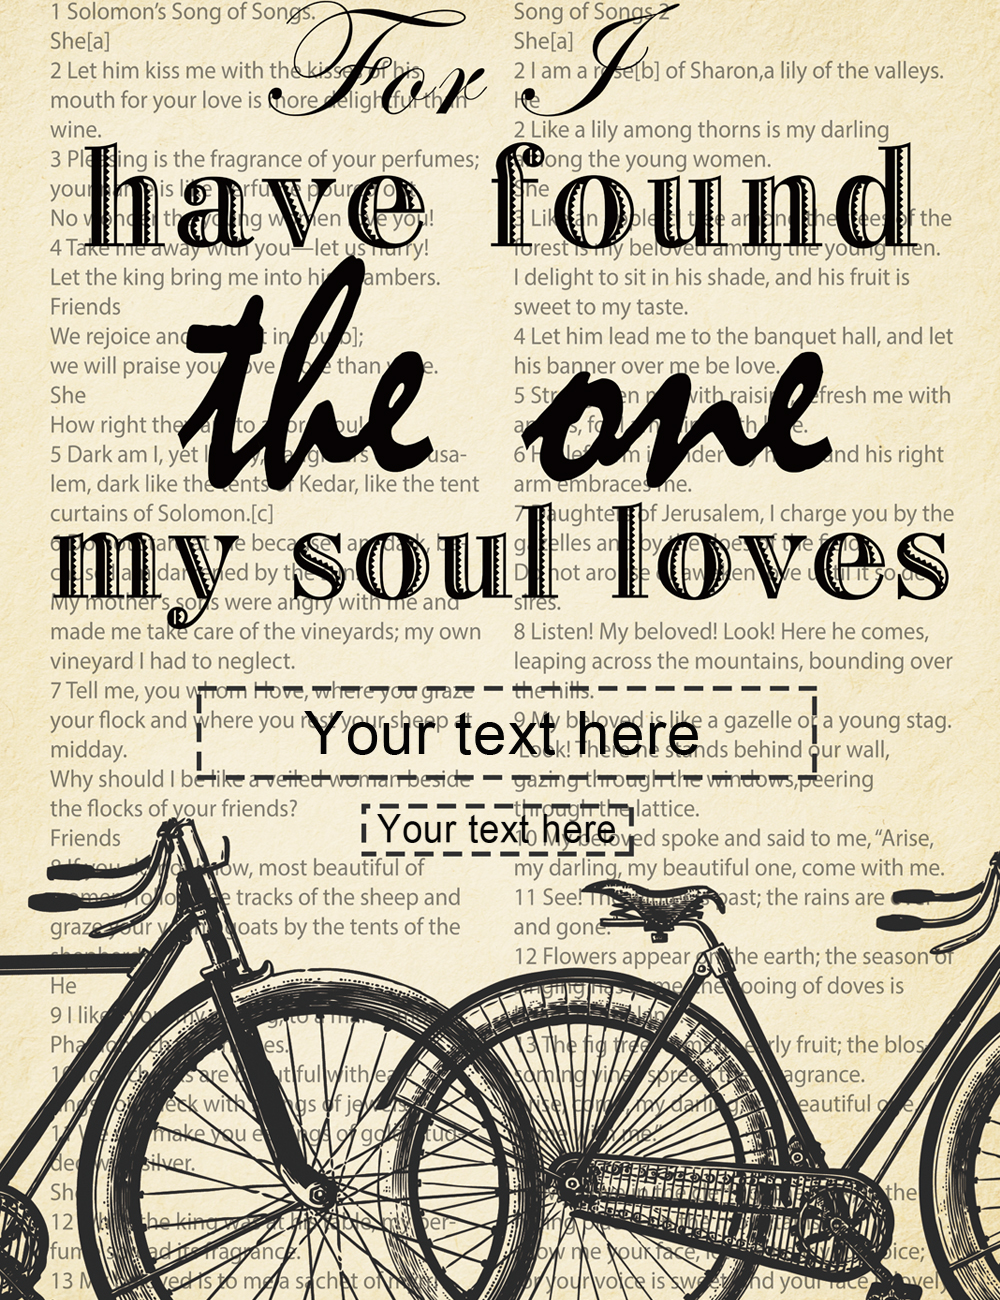 For I
have found
the one
my soul loves
Your text here
Your text here
1 Solomon's Song of Songs.
She[a]
2 Let him kiss me with the kisses of his
mouth for your love is more delightful than
wine.
3 Pleasing is the fragrance of your perfumes;
your name is like perfume poured out.
No wonder the young women love you!
4 Take me away with you—let us hurry!
Let the king bring me into his chambers.
Friends
We rejoice and in you[b];
we will praise your love more than wine.
She
How right they are to adore you!
5 Dark am I, yet lovely, daughters of Jerusa-
lem, dark like the tents of Kedar, like the tent
curtains of Solomon.[c]
6 Do not stare at me because I am dark, be-
cause I am darkened by the sun.
My mother's sons were angry with me and
made me take care of the vineyards; my own
vineyard I had to neglect.
7 Tell me, you whom I love, where you graze
your flock and where you rest your sheep at
midday.
Why should I be like a veiled woman beside
the flocks of your friends?
Friends
8 If you do know, most beautiful of
women, follow the tracks of the sheep and
graze your young goats by the tents of the
shepherds.
He
9 I liken you, my to a
Pha
10 Your cheeks are beautiful with ear-
rings, your neck with strings of jewels.
11 We will make you earrings of gold, stud-
ded with silver.
She
12 While the king was at his table, my per-
fume spread its fragrance.
13 My beloved is to me a sachet of myrrh
Song of Songs 2
She[a]
2 I am a rose[b] of Sharon,a lily of the valleys.
He
2 Like a lily among thorns is my darling
among the young women.
She
3 Like an apple[c] tree among the trees of the
forest is my beloved among the young men.
I delight to sit in his shade, and his fruit is
sweet to my taste.
4 Let him lead me to the banquet hall, and let
his banner over me be love.
5 Strengthen me with raisins, refresh me with
apples, for I am faint with love.
6 His left arm is under my head, and his right
arm embraces me.
7 Daughters of Jerusalem, I charge you by the
gazelles and by the does of the field:
Do not arouse or awaken love until it so de-
sires.
8 Listen! My beloved! Look! Here he comes,
leaping across the mountains, bounding over
the hills.
9 My beloved is like a gazelle or a young stag.
Look! There he stands behind our wall,
gazing through the windows,peering
through the lattice.
10 My beloved spoke and said to me, “Arise,
my darling, my beautiful one, come with me.
11 See! The past; the rains are over
and gone.
12 Flowers appear on the earth; the season of
singing has come, the cooing of doves is
13 The fig tree forms its early fruit; the blos-
soming vines spread their fragrance.
Arise, come, my darling; my beautiful one,
come with me.”
in the the
show me your face, voice;
for your voice is sweet, and your face is lovely